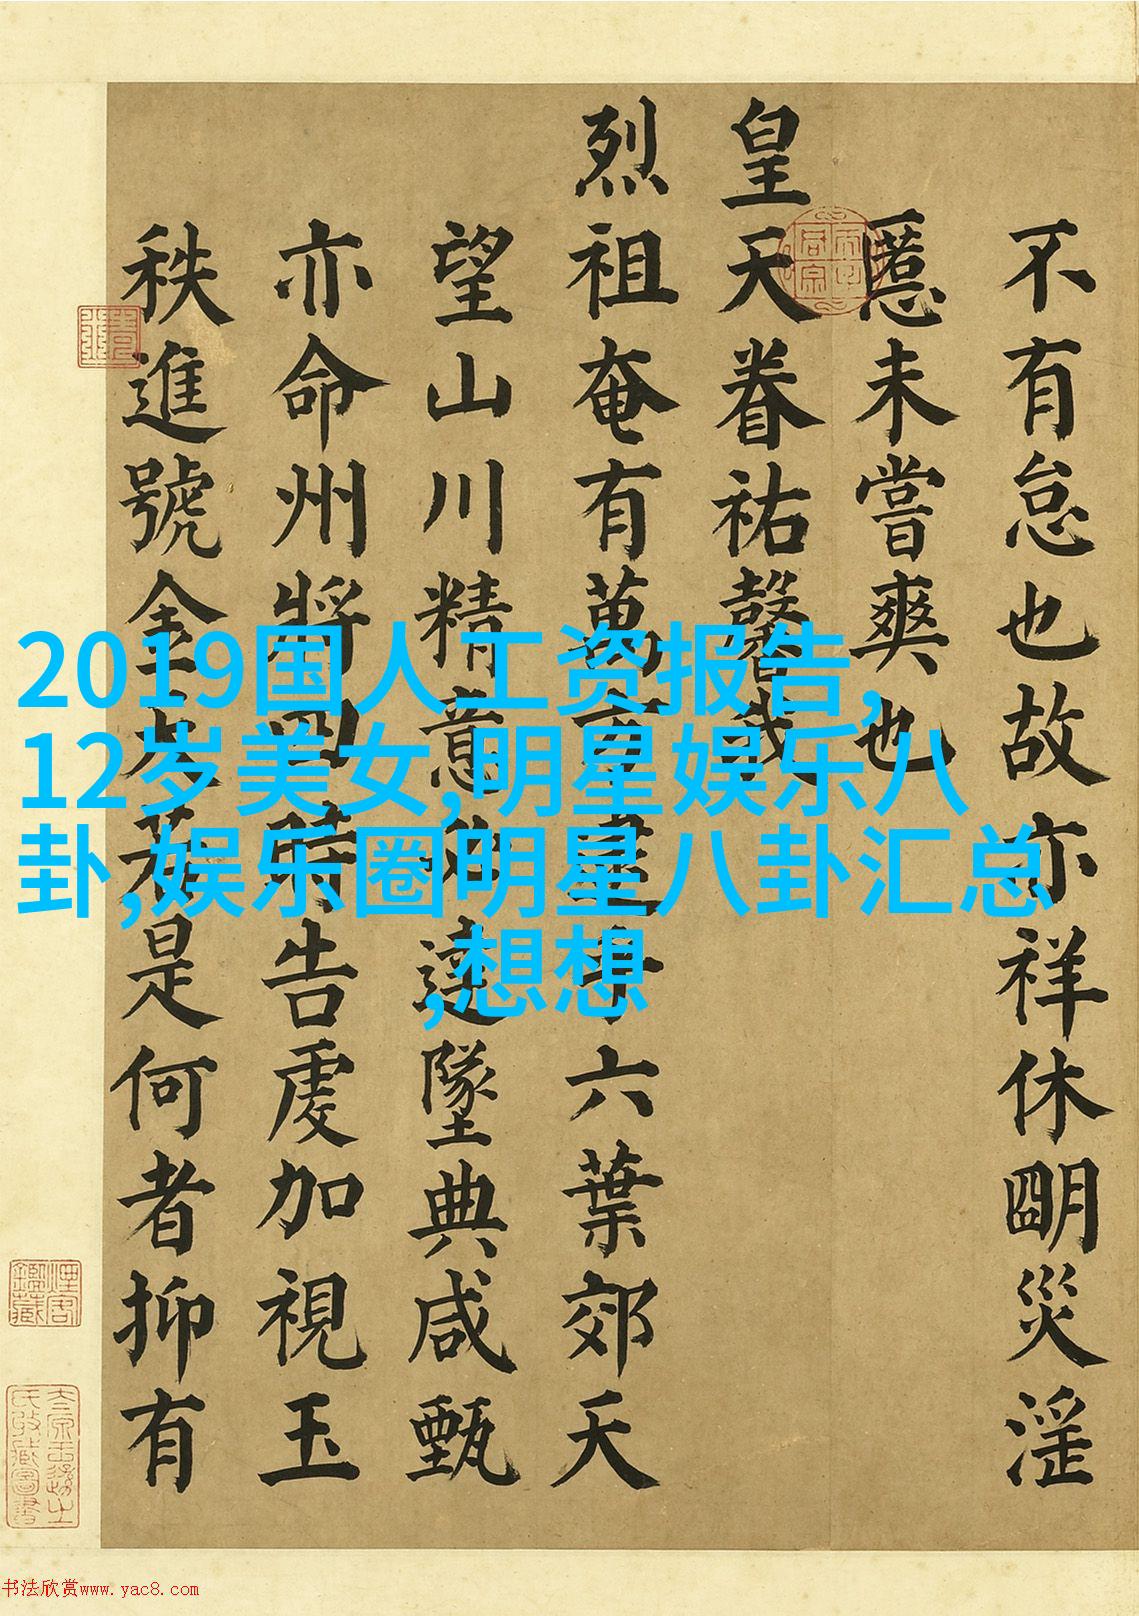 不有怠也故亦祥休朙災淫
慝未嘗爽也
皇天眷祐馨我
烈祖奄有萬方逮乎六葉郊天
望山川精意必達墜典咸甄
亦命州將四時告虔加視玉
秩進號金天若是何者抑有
2019国人工资报告,
12岁美女,明星娱乐八
卦,娱乐圈明星八卦汇总
,想想
书法欣赏www.yac8.com